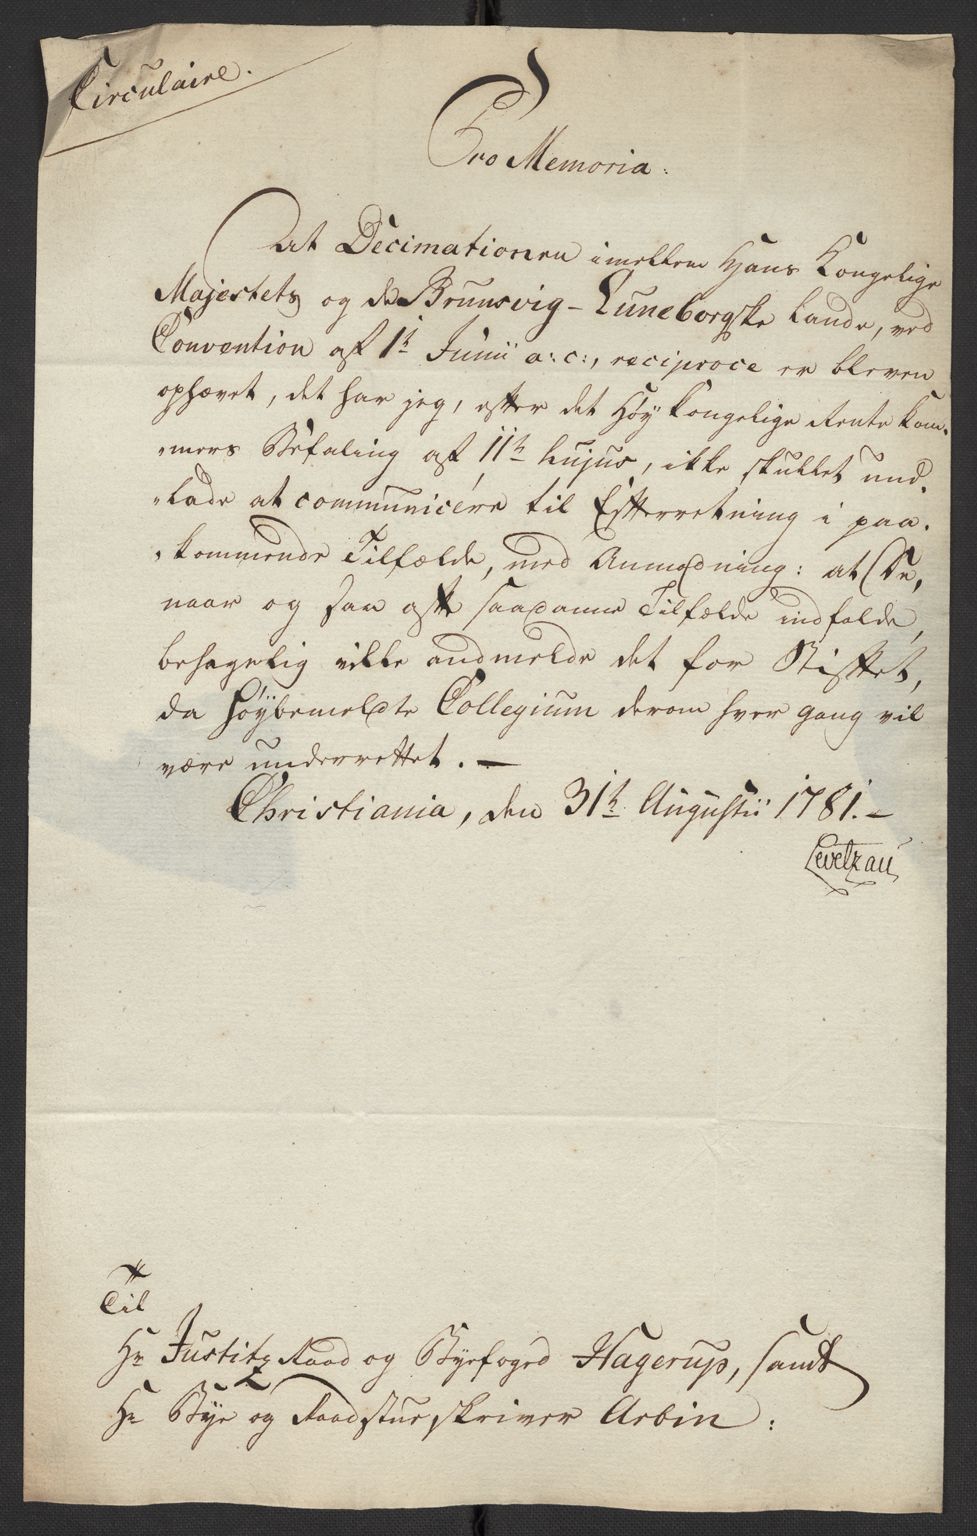 Circulaire.
Pro Memoria.
At Decimationen imellem Hans Kongelige
Majestets og de Brunsvig-Luneborgske Lande, ved
Convention af 1t Junii a: c:, reciproce er bleven
ophævet, det har jeg, efter det Høy Kongelige Rente Kam-
-mers Befaling af 11te hujus, ikke skullet und-
-lade at communicére til Efterretning i paa-
-kommende Tilfælde, med Anmodning: at De,
naar og saa oft saadanne Tilfælde indfalde,
behagelig ville andmelde det for Stiftet,
da høybemeldte Collegium derom hver gang vil
være underrettet. —
Christiania, den 31te Augustii 1781. —
Levetzau
Til
Hr Justitz Raad og Byefoged Hagerup, samt
Hr Bye og Raadstueskriver Arbin: